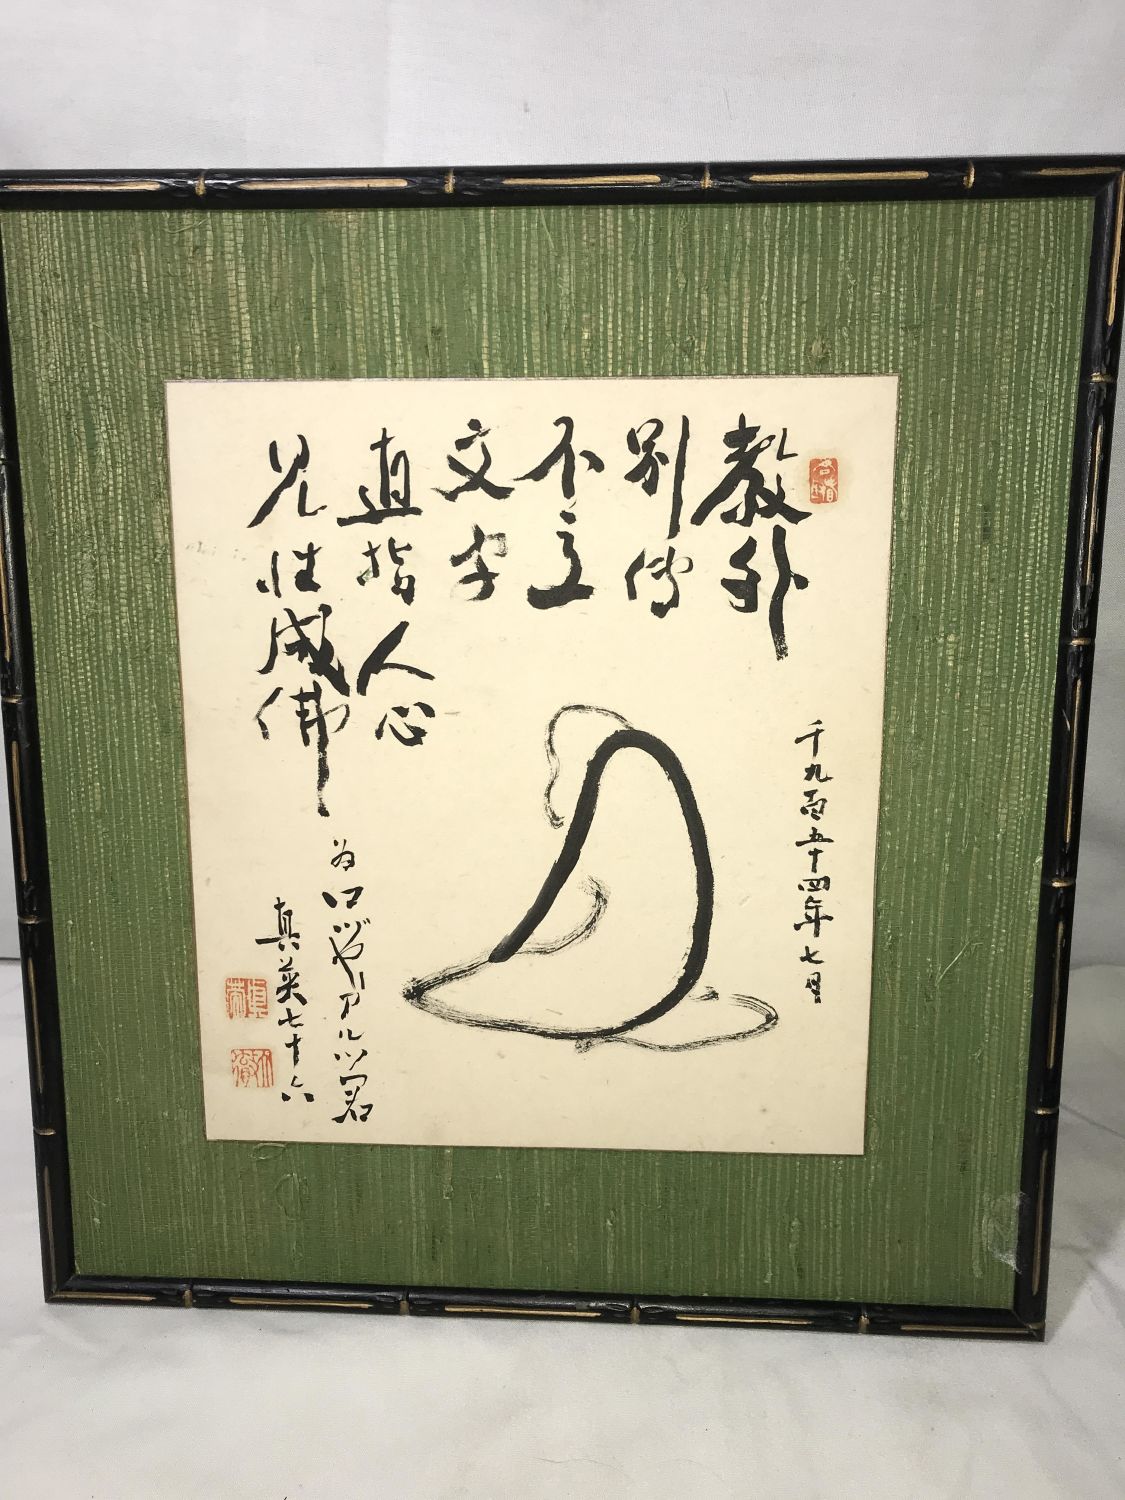 教外
別傳
不立
文字
直指人心
見性成佛
千九百五十四年七月
為ロッヂャアルツ君
真英七十六